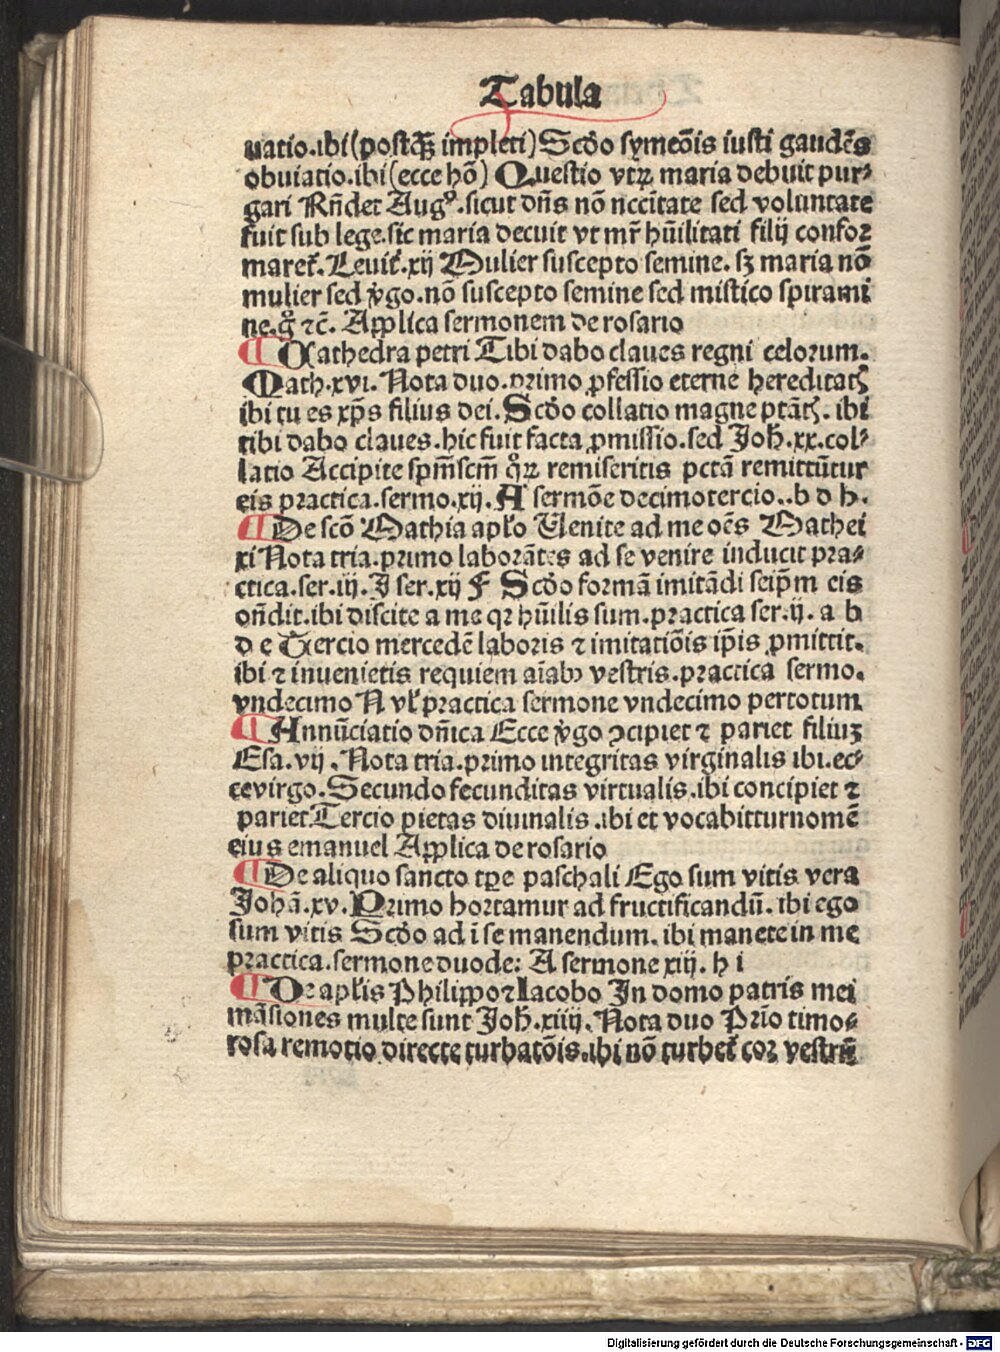 Tabula
uatio.ibi(postq̃ꝫ impleti)Scðo symeõis iusti gaudẽs
obuiatio.ibi(ecce hõ) Questio vtrꝫ maria debuit pur⸗
gari Rñdet Augꝰ.sicut dñs nõ nccitate sed voluntate
fuit sub lege.sic maria decuit vt mr̃ hũilitati filij confor
maret̃.Leuit̃.xij Mulier suscepto semine.sꝫ maria nõ
mulier sed v̾go.nõ suscepto semine sed mistico spirami
ne.g̊ ⁊c̃. Applica sermonem de rosario
¶ Cathedra petri Tibi dabo claues regni celorum.
Math.xvi.Nota duo.primo ꝓfessio eterne hereditatꝭ
ibi tu es xp̃s filius dei.Scðo collatio magne ptãtꝭ. ibi
tibi dabo claues.hic fuit facta ꝓmissio.sed Joh̃.xx.col⸗
latio Accipite sp̃mscm̃ qͦꝝ remiseritis pctã remittũtur
eis practica.sermo.xij.A sermõe decimotercio..b d h.
¶ De scõ Mathia apl̃o Uenite ad me oẽs Mathei
xi Nota tria.primo laborãtes ad se venire inducit pra⸗
ctica.ser.iij.J ser.xij F Scðo formã imitãdi seip̃m eis
oñdit.ibi discite a me qꝛ hũilis sum.practica ser.ij. a b
d e Tercio mercedẽ laboris ⁊ imitatiõis ip̃is ꝓmittit.
ibi ⁊ inuenietis requiem aĩabꝰ vestris.practica sermo.
vndecimo A vl̃ practica sermone vndecimo pertotum
¶ Annũciatio dñica Ecce v̾go ꝯcipiet ⁊ pariet filiuꝫ
Esa.vij.Nota tria.primo integritas virginalis ibi.ec⸗
cevirgo.Secundo fecunditas virtualis.ibi concipiet ⁊
pariet Tercio pietas diuinalis.ibi et vocabitturnomẽ
eius emanuel Applica de rosario
¶ De aliquo sancto tꝑe paschali Ego sum vitis vera
Johã.xv.Primo hortamur ad fructificandũ.ibi ego
sum vitis Scðo ad ĩ se manendum.ibi manete in me
practica.sermone duode: A sermone xiij.h i
¶ De apl̃is Philippo ⁊ Iacobo In domo patris mei
mãsiones multe sunt Joh̃.xiiij.Nota duo Prĩo timo⸗
rosa remotio directe turbatõis.ibi nõ turbet̃ cor vestrũ
Digitalisierung gefördert durch die Deutsche Forschungsgemeinschaft - DFG